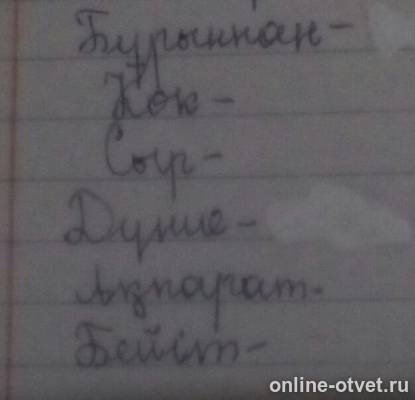 Бурыннан-
Кок-
Сыр-
Дуние-
Ақпарат.
Бейіт-
online-otvet.ru